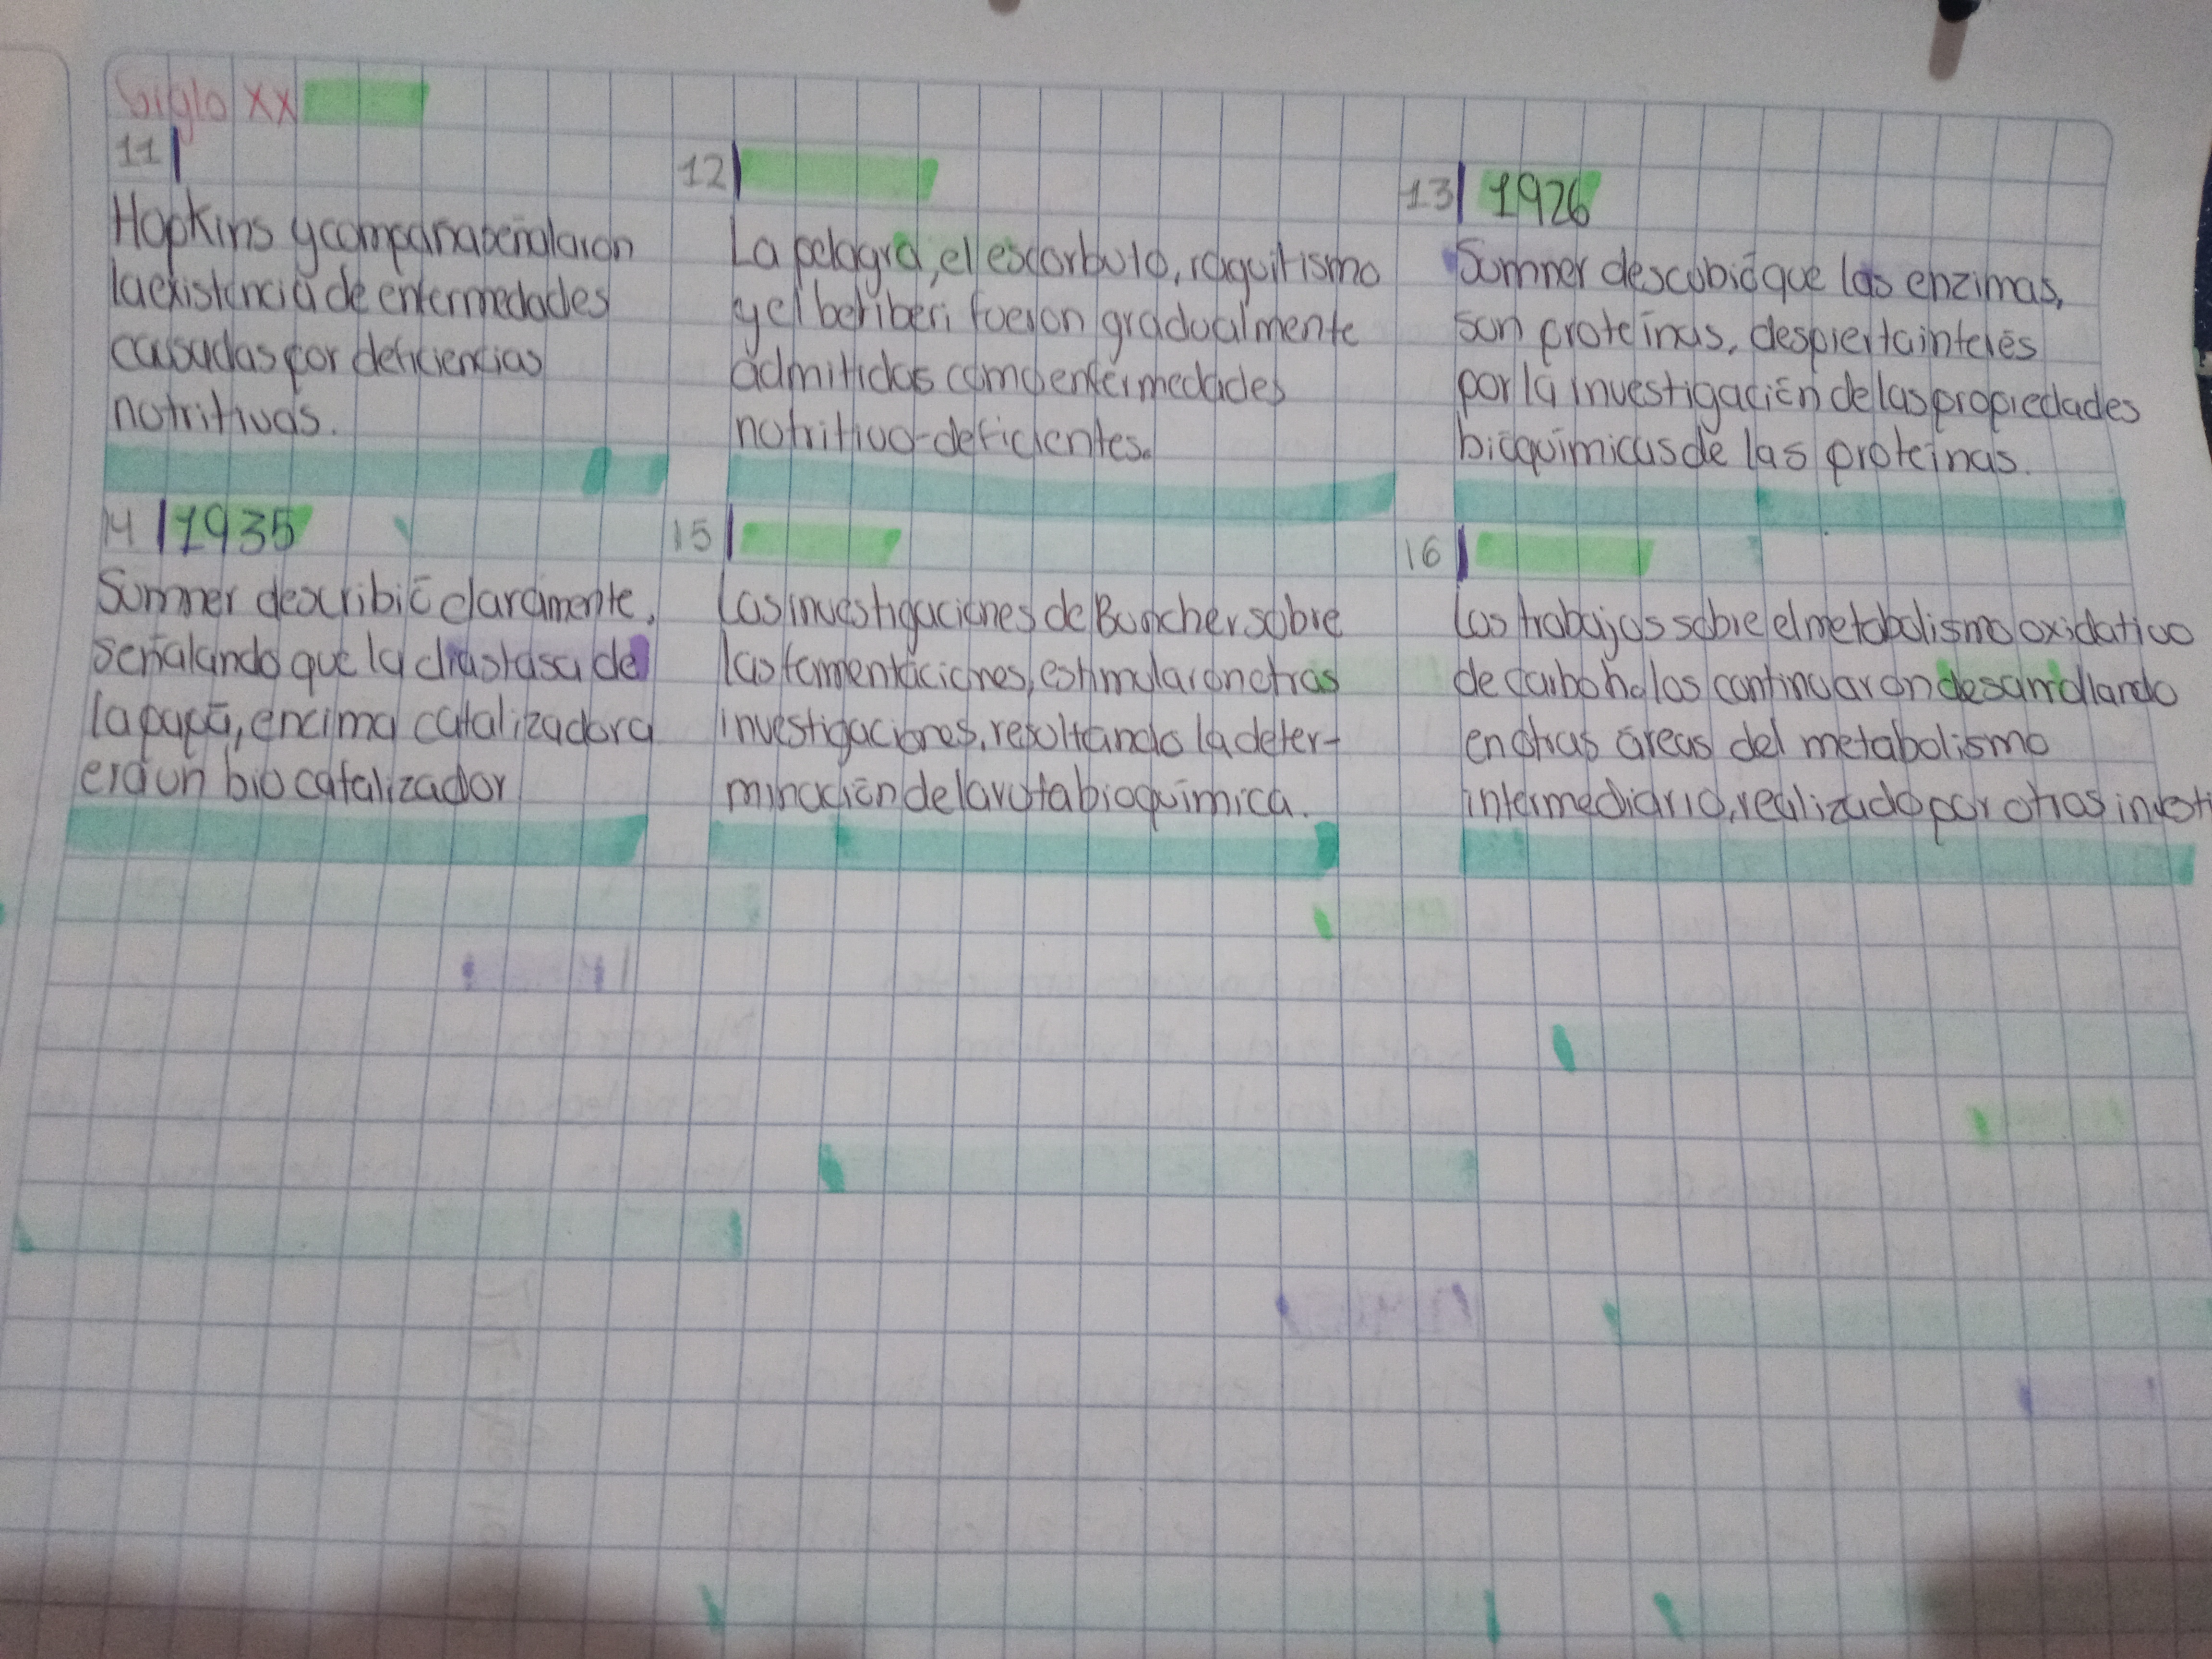 Siglo XX
11
Hopkins y compana señalaron
la existencia de enfermedades
causadas por deficiencias
nutritivas.
12
La pelagra, el escorbuto, raquitismo
y el beriberi fueron gradualmente
admitidas como enfermedades
nutritivo-deficientes.
13 1926
Sumner descubió que las enzimas,
son proteínas, despierta interés
por la investigación de las propiedades
bioquímicas de las proteínas.
14 1935
Sumner describió claramente,
señalando que la diastasa de
la papa, encima catalizadora
era un bio catalizador
15
Las investigaciones de Buncher sobre
las fermentaciones, estimularon otras
investigaciones, resultando la deter-
minación de la ruta bioquímica.
16
Los trabajos sobre el metabolismo oxidativo
de carboholos continuaron desarrollando
en otras áreas del metabolismo
intermediario, realizado por otros investi